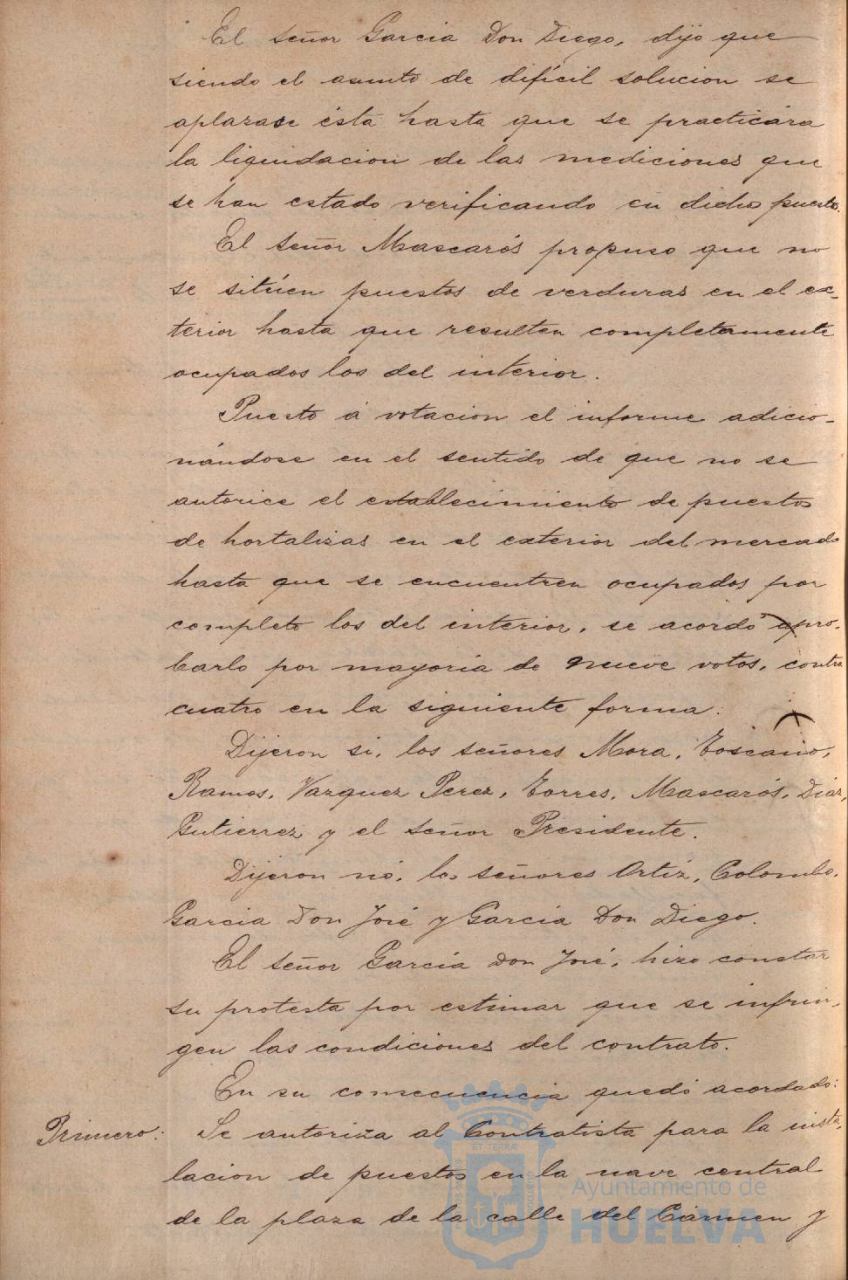 El señor Garcia Don Diego, dijo que
siendo el asunto de difícil solucion se
aplazase ésta hasta que se practicára
la liquidacion de las mediciones que
se han estado verificando en dicho puesto.
El señor Mascarós propuso que no
se sitúen puestos de verduras en el ex-
terior hasta que resulten completamente
ocupados los del interior.
Puesto á votacion el informe adicio-
nándose en el sentido de que no se
autorice el establecimiento de puestos
de hortalizas en el exterior del mercado
hasta que se encuentren ocupados por
completo los del interior, se acordó apro-
barlo por mayoría de nueve votos, contra
cuatro en la siguiente forma:
Dijeron si, los señores Mora, Toscano,
Ramos, Vazquez Perez, Torres, Mascarós, Diaz,
Gutierrez y el señor Presidente.
Dijeron nó, los señores Ortíz, Colombo,
Garcia Don José y Garcia Don Diego.
El señor García Don José, hizo constar
su protesta por estimar que se infrin-
gen las condiciones del contrato.
En su consecuencia quedó acordado:
Primero: Se autoriza al Contratista para la insta-
lacion de puestos en la nave central
de la plaza de la calle del Cármen y
Ayuntamiento de
HUELVA